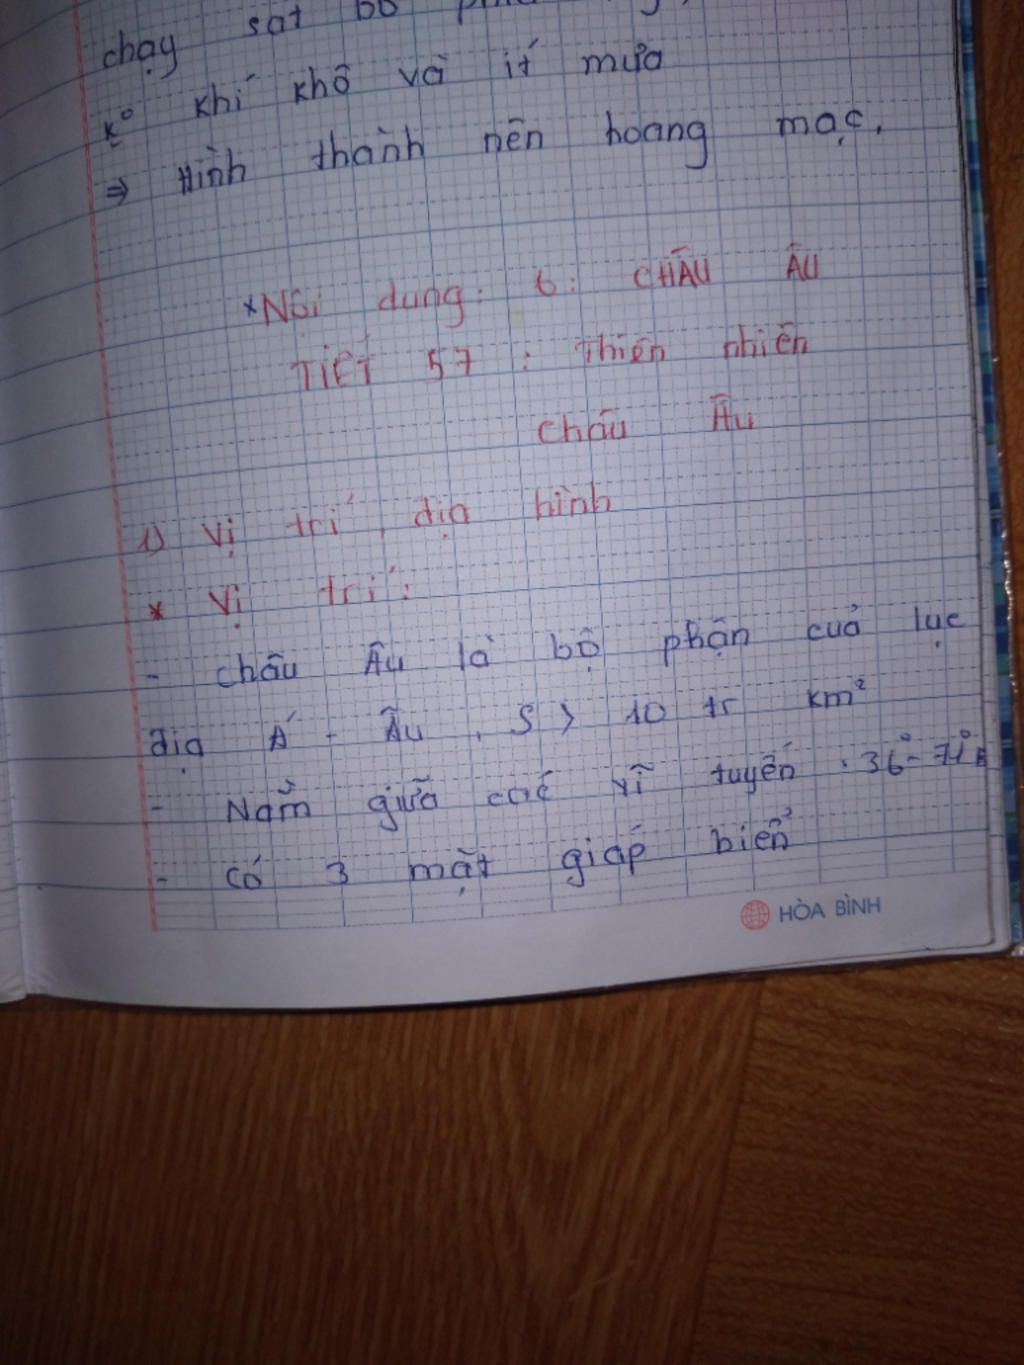 chạy sát bờ
k° khí khô và ít mưa
⇒ Hình thành nên hoang mạc.
*Nội dung: 6: CHÂU ÂU
TIẾT 57 : Thiên nhiên
Châu Âu
1) Vị trí, địa hình
* Vị trí:
- Châu Âu là bộ phận của lục
địa Á - Âu, S > 10 tr km²
- Nằm giữa các vĩ tuyến : 36° - 71°B
- Có 3 mặt giáp biển
HÒA BÌNH